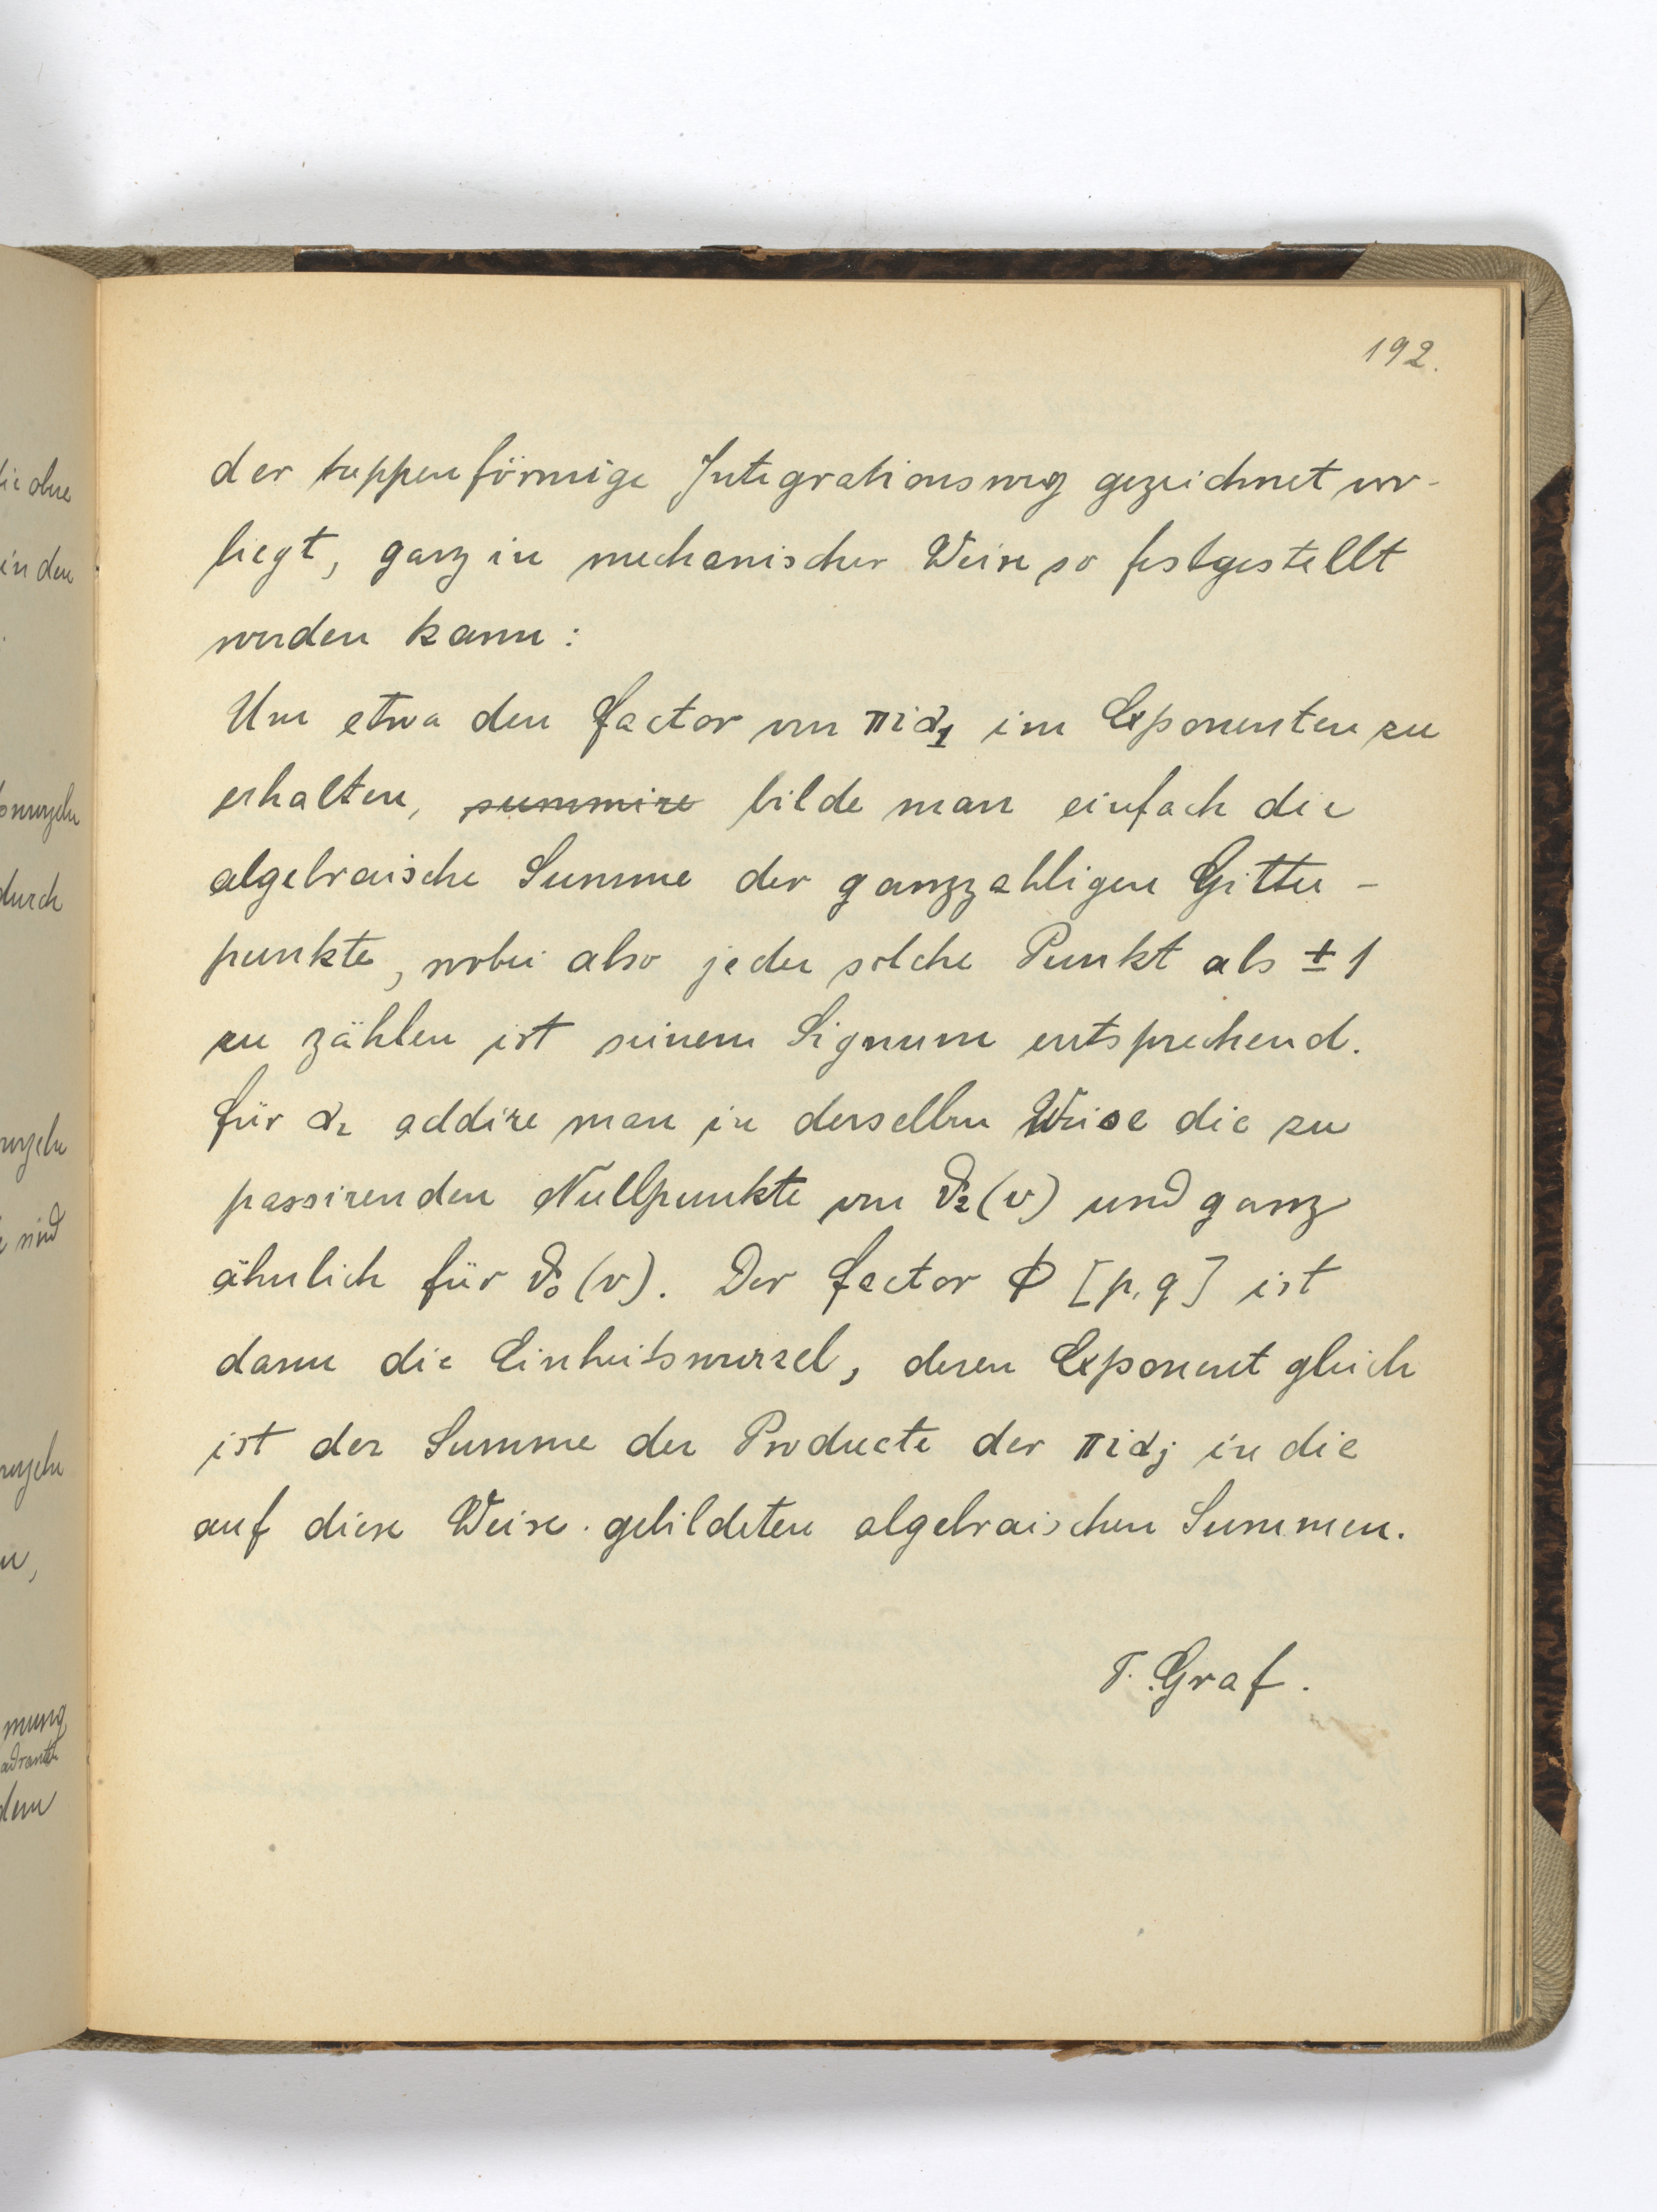 192.
der treppenförmige Integrationsweg gezeichnet vor-
liegt, ganz in mechanischer Weise so festgestellt
werden kann:
Um etwa den Factor von πiα₁ im Exponenten zu
erhalten, summire bilde man einfach die
algebraische Summe der ganzzahligen Gitter-
punkte, wobei also jeder solche Punkt als ± 1
zu zählen ist seinem Signum entsprechend.
Für α₂ addire man in derselben Weise die zu
passirenden Nullpunkte von ϑ₂(v) und ganz
ähnlich für ϑ₀(v). Der Factor Φ [p,q] ist
dann die Einheitswurzel, deren Exponent gleich
ist der Summe der Producte der πiαⱼ in die
auf diese Weise gebildeten algebraischen Summen.
T. Graf.
ie ohne
in den
durch
sind
dem